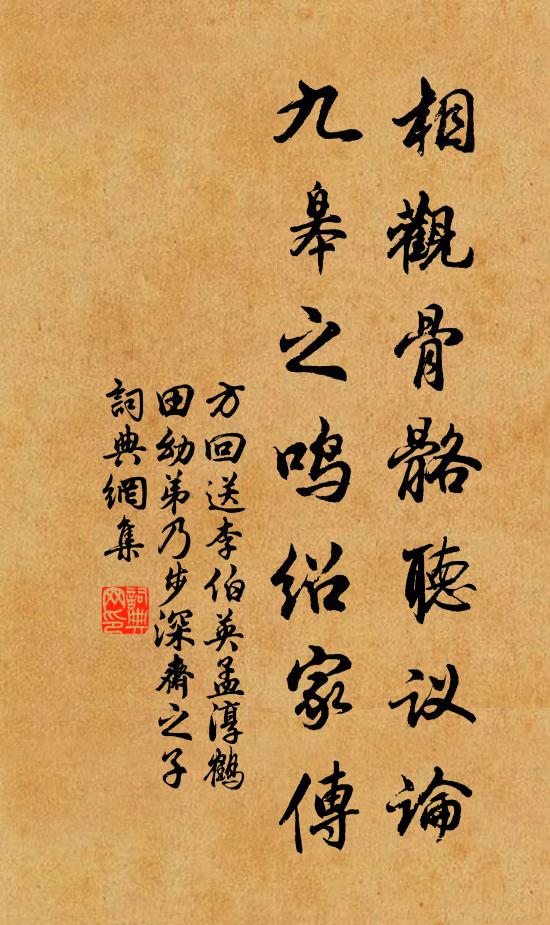 相觀骨骼聽议論
九皋之鳴紹家傳
方回送李伯英孟淳鶴
田幼弟乃步深齋之子
詞典網集
詞典网印